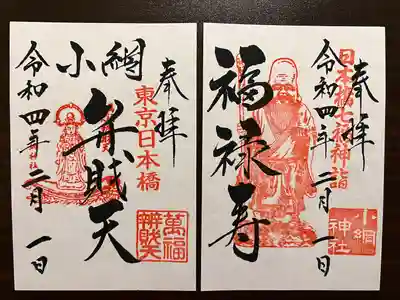 奉拝
東京日本橋
萬福
辨財天
小網
弁財天
令和四年二月一日
奉拝
日本橋七福神詣
小網
神社
福禄寿
令和四年二月一日